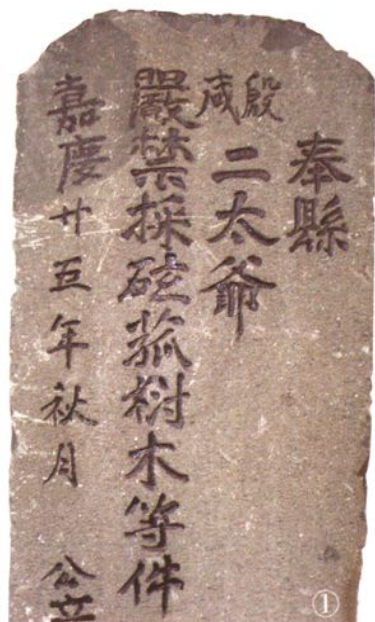 奉縣
殷咸二太爺
嚴禁採菰樹木等件
嘉慶廿五年秋月 公立
①